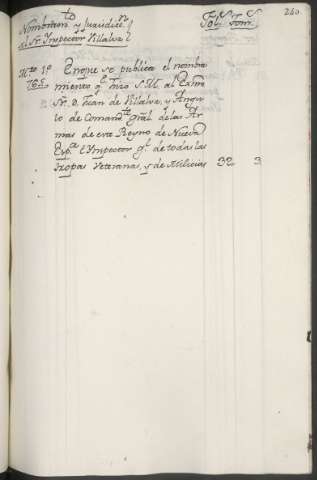 240.
Nombram.to y Jurisdic.n
del Sr. Ynspector Villalva
Fol.s Tom.s
M.zo 1º
765
En que se publica el nombra
miento q. hizo S. M. al Exmo
Sr. D. Juan de Villalva, y Angu
lo de Comand.te gral. de las Ar
mas de este Reyno de Nueva
Esp.a e Ynspector gl. de todas las
tropas Veteranas, y de Milicias 32 3